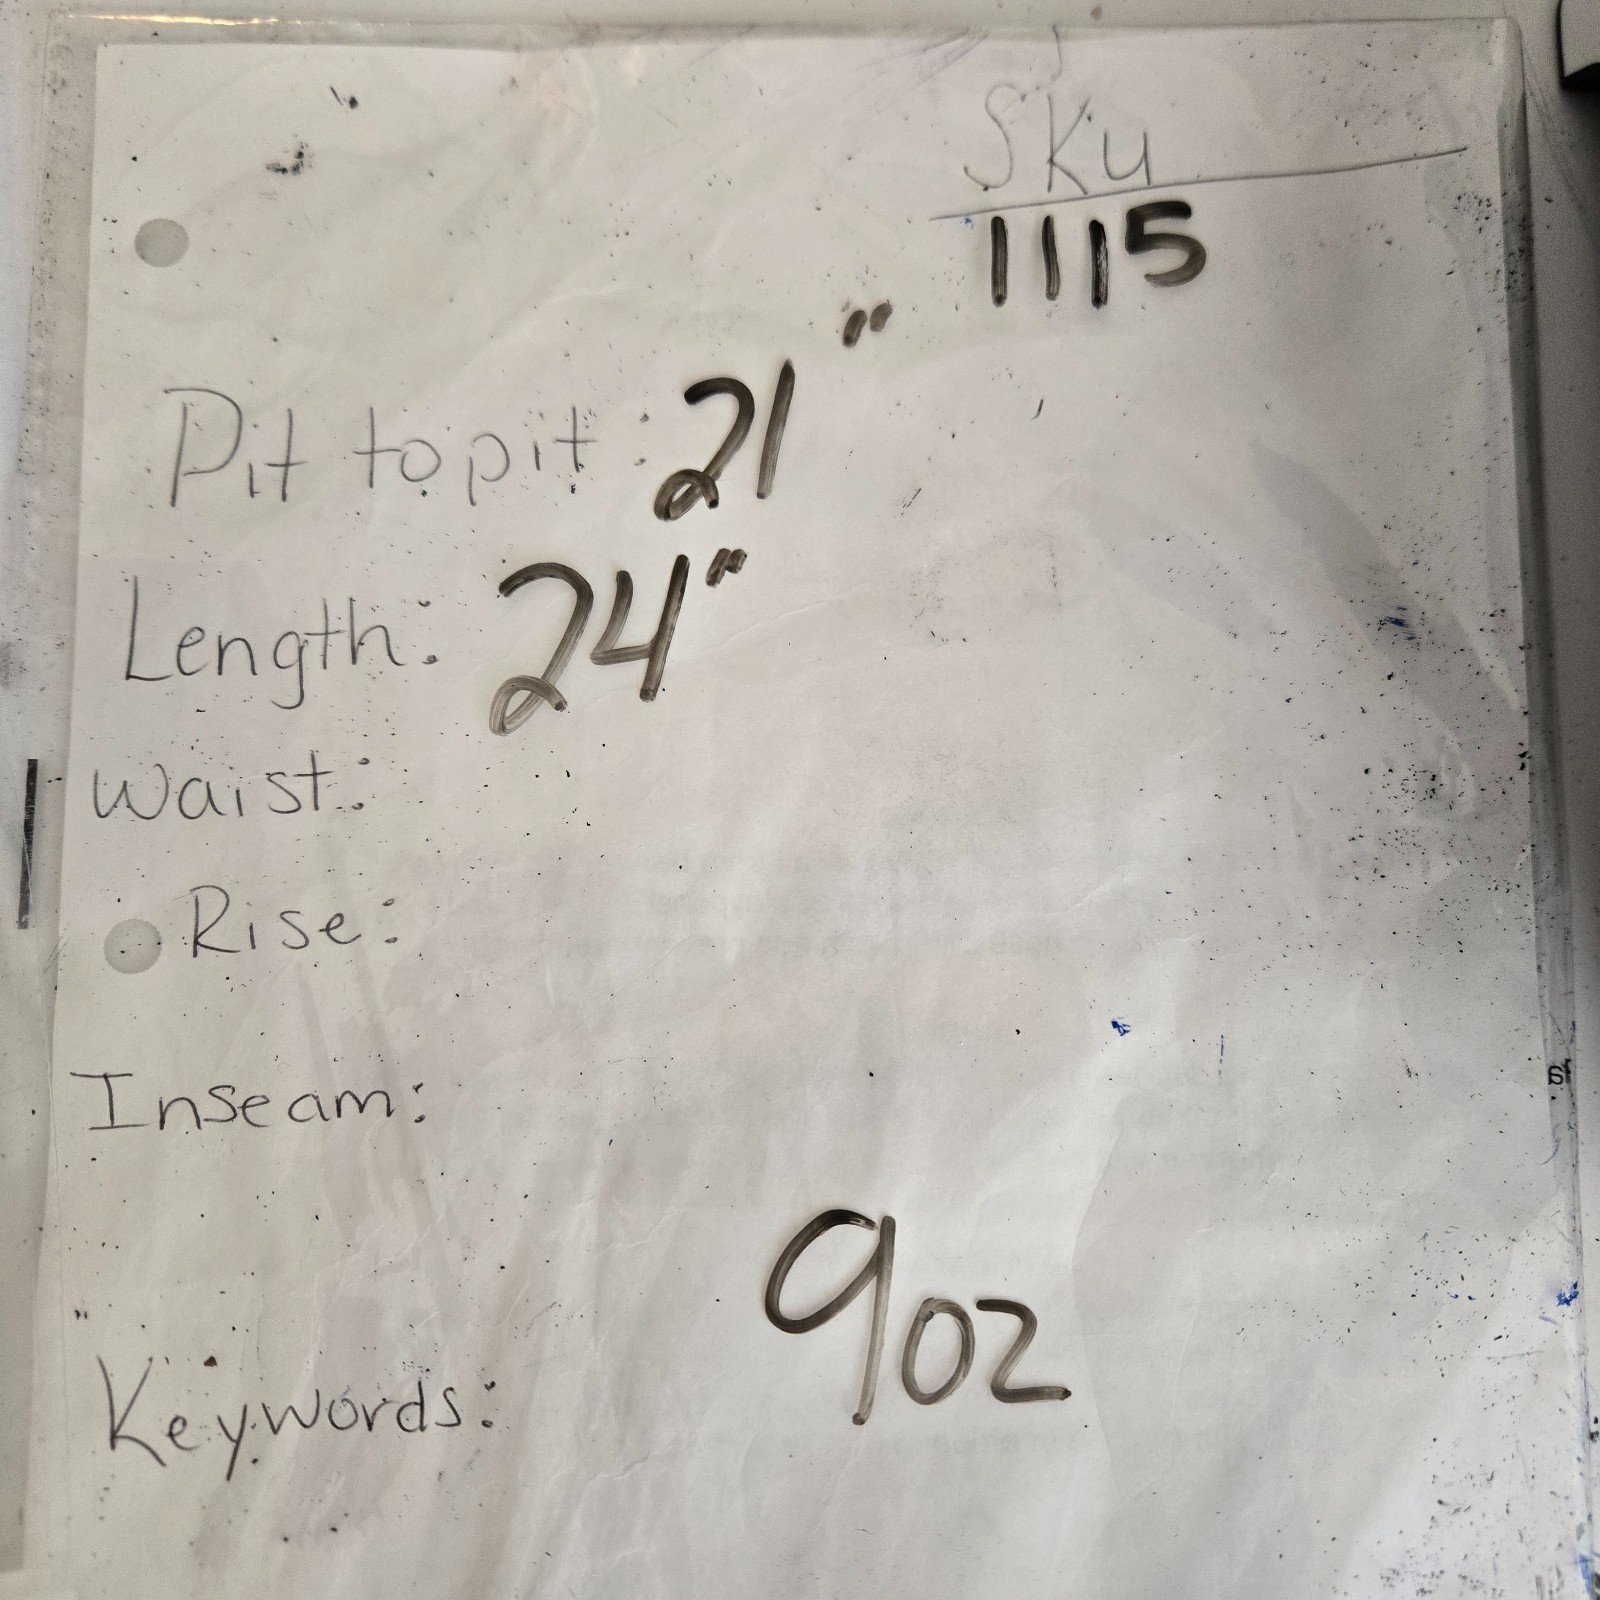 SKu
1115
Pit to pit: 21"
Length: 24"
Waist:
Rise:
Inseam:
9oz
Keywords: